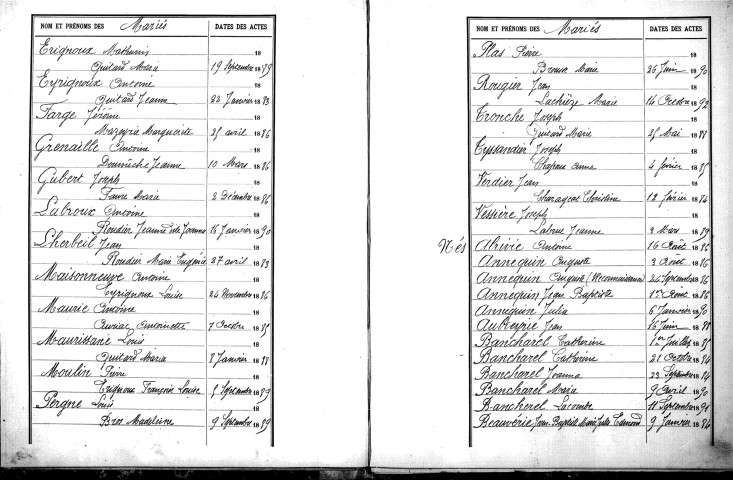 NOM ET PRÉNOMS DES Mariés DATES DES ACTES
Erignoux Mathurin 18
Quitard Maria 19 Septembre 1889
Eyrignoux Antoine 18
Quitard Jeanne 22 Janvier 1883
Farge Jérôme 18
Mazeyrie Marguerite 25 avril 1886
Grenaille Antoine 18
Jeanne 10 Mars 1886
Gubert Joseph 18
Faure Marie 2 Décembre 1886
Labroux Antoine 18
Roudier Jeanne dite Joanna 18 Janvier 1890
Lherbeil Jean 18
Roudier Marie Eugénie 27 avril 1883
Maisonneuve Antoine 18
Eyrignoux Louise 24 Novembre 1886
Maurie Antoine 18
Auriac Antoinette 7 Octobre 1885
Maurissane Louis 18
Quitard Maria 8 Janvier 1888
Moulin Pierre 18
Erignoux Françoise Louise 8 Septembre 1889
Pergne Louis 18
Bros Madeleine 9 Septembre 1889
NOM ET PRÉNOMS DES Mariés DATES DES ACTES
Plas Pierre 18
Broux Marie 26 Juin 1890
Rougier Jean 18
Lachièze Marie 14 Octobre 1892
Tronche Joseph 18
Quitard Marie 25 Mai 1888
Teyssandier Joseph 18
Chapoux Anna 4 février 1885
Verdier Jean 18
Charageac Christine 12 février 1884
Vessière Joseph 18
Labrue Jeanne 3 Mars 1889
Nés Ahivie Antoine 16 Août 1886
Annequin Auguste 3 Août 1886
Annequin Auguste (Reconnaissance) 24 Septembre 1886
Annequin Jean Baptiste 1er Août 1886
Annequin Julia 6 Janvier 1890
Aubreyrie Jean 16 Juin 1888
Bancharel Catherine 1er Juillet 1885
Bancharel Catherine 21 Octobre 1884
Bancharel Joanna 23 Septembre 1884
Bancharel Maria 9 Avril 1890
Bancherel Lacombe 11 Septembre 1891
Beauvérie Jean-Baptiste Marie Jules Edmond 9 Janvier 1884